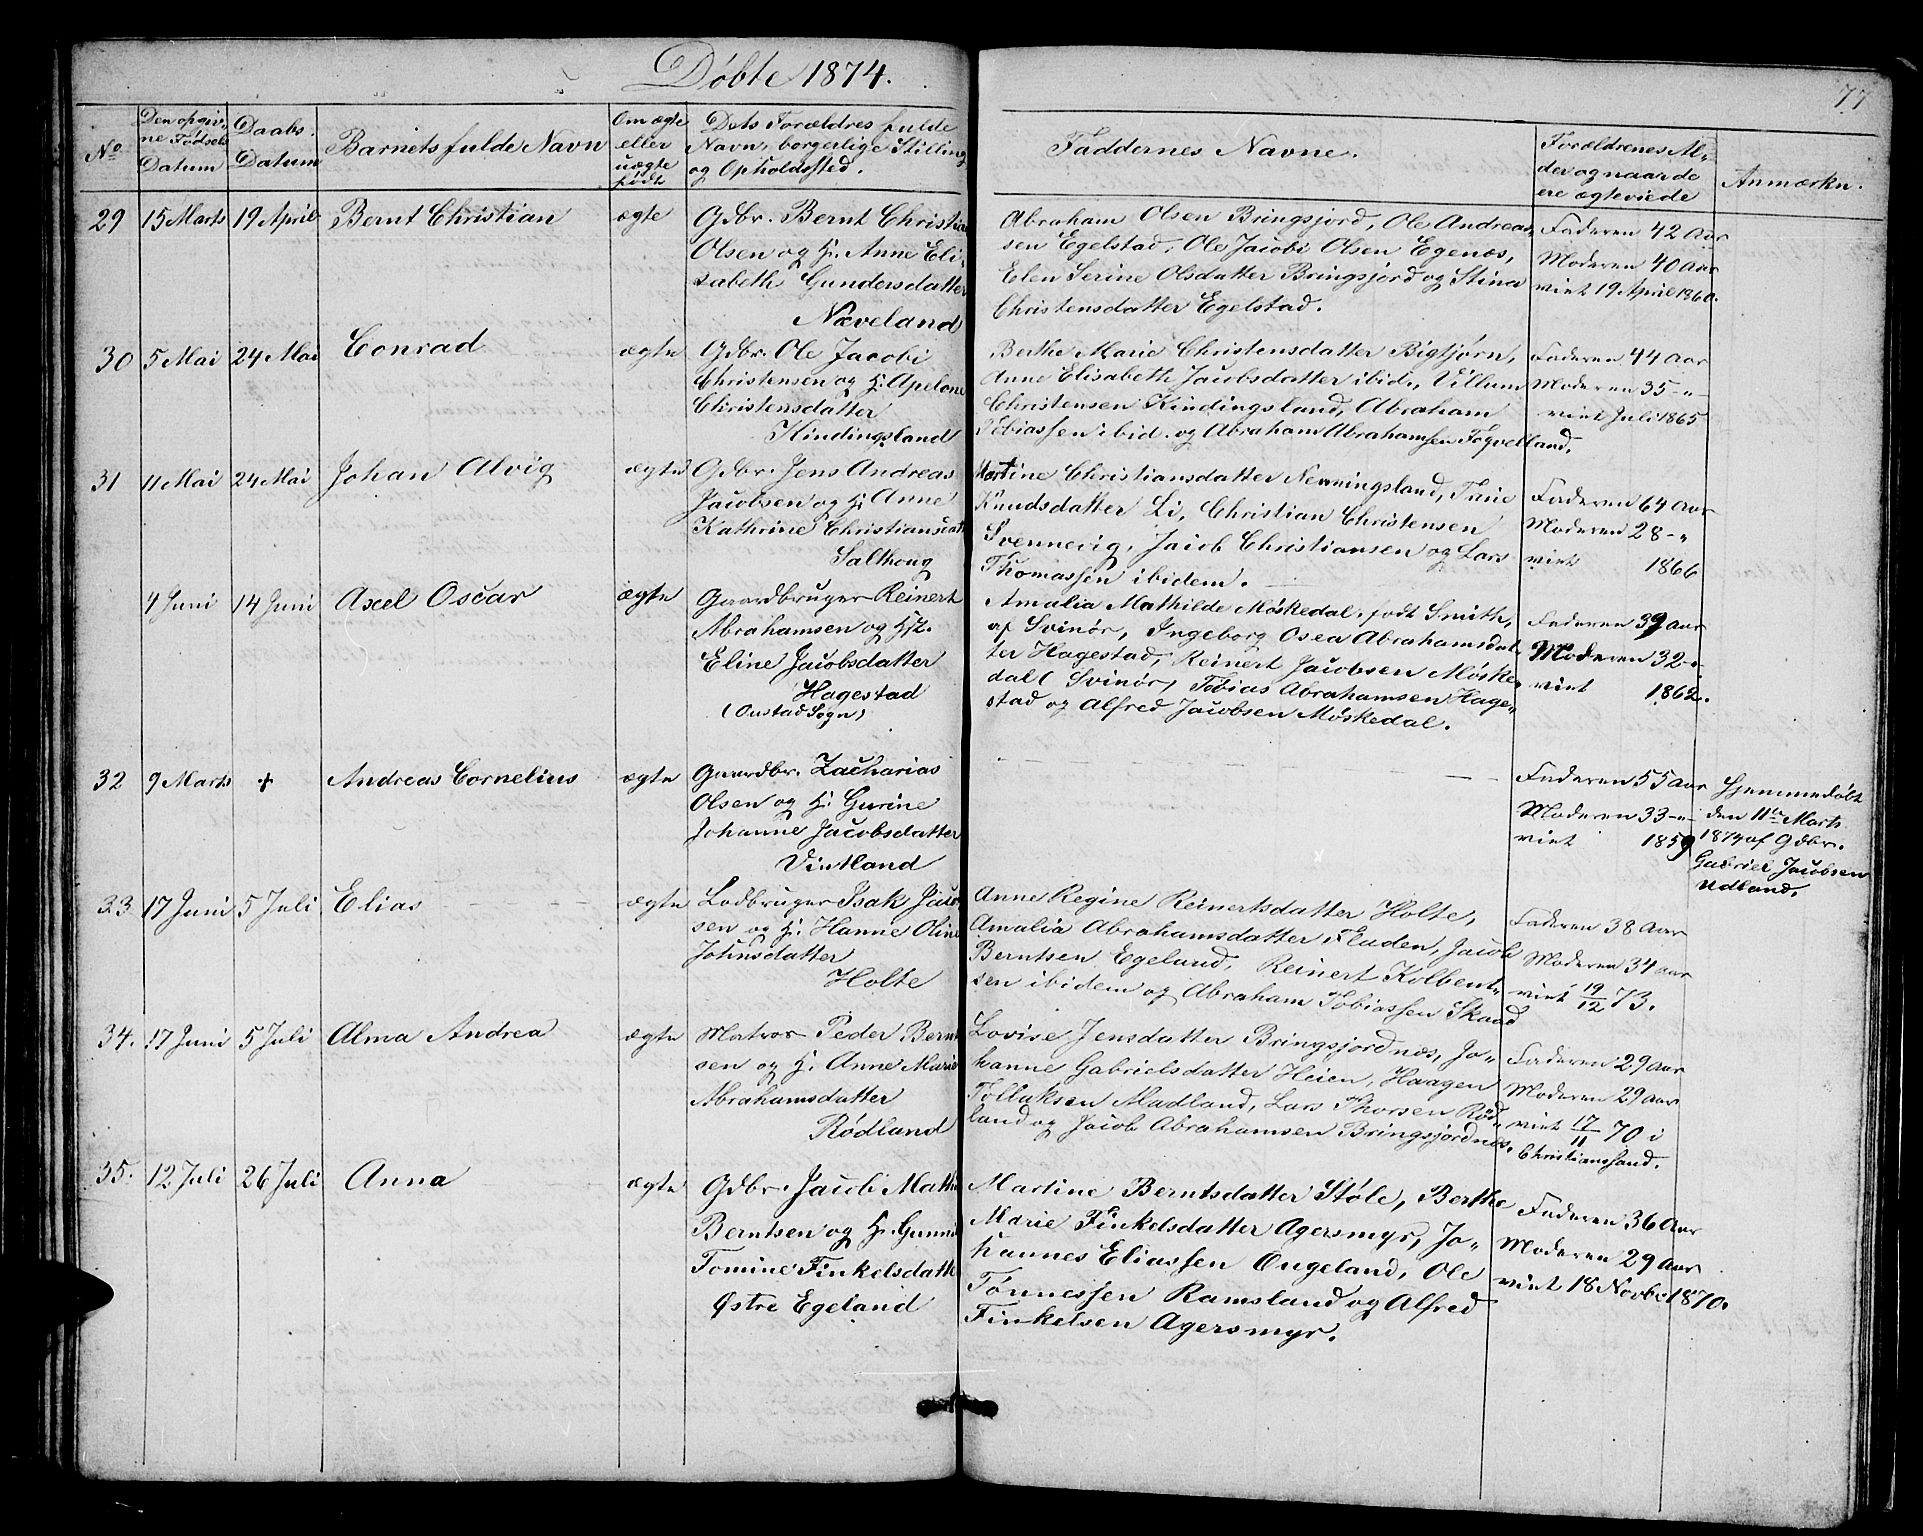 Døbte 1874.
77
No
Den opgiv-
ne Fødsels
Datum
Daabs.
Datum
Barnets fulde Navn
Om ægte
eller
uægte
født
Dets Forældres fulde
Navn, borgerlige Stilling
og Opholdssted.
Faddernes Navne.
Forældrenes Al-
der og naar de
ere ægteviede
Anmærkn.
29 15 Marts 19 April Bernt Christian ægte
Gdbr. Bernt Christian
Olsen og H. Anne Eli-
sabeth Gundersdatter
Næveland
Abraham Olsen Bringsjord, Ole Andreas-
sen Egelstad, Ole Jacobi Olsen Egenæs,
Elen Serine Olsdatter Bringsjord og Stina
Christensdatter Egelstad.
Faderen 42 Aar
Moderen 40 Aar
viet 19 April 1860.
30 5 Mai 24 Mai Conrad ægte
Gdbr. Ole Jacobi
Christensen og H. Apelone
Christensdatter
Kindingsland
Berthe Marie Christensdatter Bigtjørn,
Anne Elisabeth Jacobsdatter ibid., Villum
Christensen Kindingsland, Abraham
Tobiassen ibid. og Abraham Abrahamsen Fogvelland.
Faderen 44 Aar
Moderen 35 - "
viet Juli 1865
31 11 Mai 24 Mai Johan Alvig ægte
Gdbr. Jens Andreas
Jacobsen og H. Anne
Kathrine Christiansdatt
Salthoug
Martine Christiansdatter Nenningsland, Trine
Knudsdatter Li, Christian Christensen
Svennevig, Jacob Christiansen og Lars
Thomassen ibidem.
Faderen 64 Aar
Moderen 28 - "
viet 1866
4 Juni 14 Juni Axel Oscar ægte
Gaardbruger Reinert
Abrahamsen og Hst.
Eline Jacobsdatter
Hagestad
(Oustad Sogn)
Amalia Mathilde Møskedal, født Smith,
af Svinør, Ingeborg Osea Abrahamsdat-
ter Hagestad, Reinert Jacobsen Møske-
dal Svinør, Tobias Abrahamsen Hage-
stad og Alfred Jacobsen Møskedal.
Faderen 39 Aar
Moderen 32 - "
viet 1862.
32 9 Marts + Andreas Cornelius ægte
Gaardbr. Zacharias
Olsen og H. Gurine
Johanne Jacobsdatter
Vintland
Faderen 55 Aar
Moderen 33 - "
viet 1859
Hjemmedøbt
den 11te Marts
1874 af Gdbr.
Gabriel Jacobsen
Udland.
33 17 Juni 5 Juli Elias ægte
Lodbruger Isak Jacob-
sen og H. Hanne Oline
Johnsdatter
Holte
Anne Regine Reinertsdatter Holte,
Amalia Abrahamsdatter Fladen, Jacob
Berntsen Egeland, Reinert Kolbent-
sen ibidem og Abraham Tobiassen Skaad
Faderen 38 Aar
Moderen 34 aar
viet 19/12 73.
34. 17 Juni 5 Juli Alma Andrea ægte
Matros Peder Bernt
sen og H. Anne Marie
Abrahamsdatter
Rødland
Lovise Jensdatter Bringsjordnes, Jo-
hanne Gabrielsdatter Heien, Haagen
Tollaksen Madland, Lars Thorsen Rød-
land og Jacob Abrahamsen Bringsjordnes.
Faderen 29 Aar
Moderen 29 Aar
viet 17/11 70 i
Christianssand.
35. 12 Juli 26 Juli Anna ægte
Gdbr. Jacob Mathi
Berntsen og H. Gunni
Tomine Finkelsdatte
Østre Egeland
Martine Berntsdatter Støle, Berthe
Marie Finkelsdatter Agersmyr, Jo-
hannes Eliassen Ougeland, Ole
Tønnessen Ramsland og Alfred
Finkelsen Agersmyr.
Faderen 36 Aar
Moderen 29 Aar
viet 18 Novbr 1870.